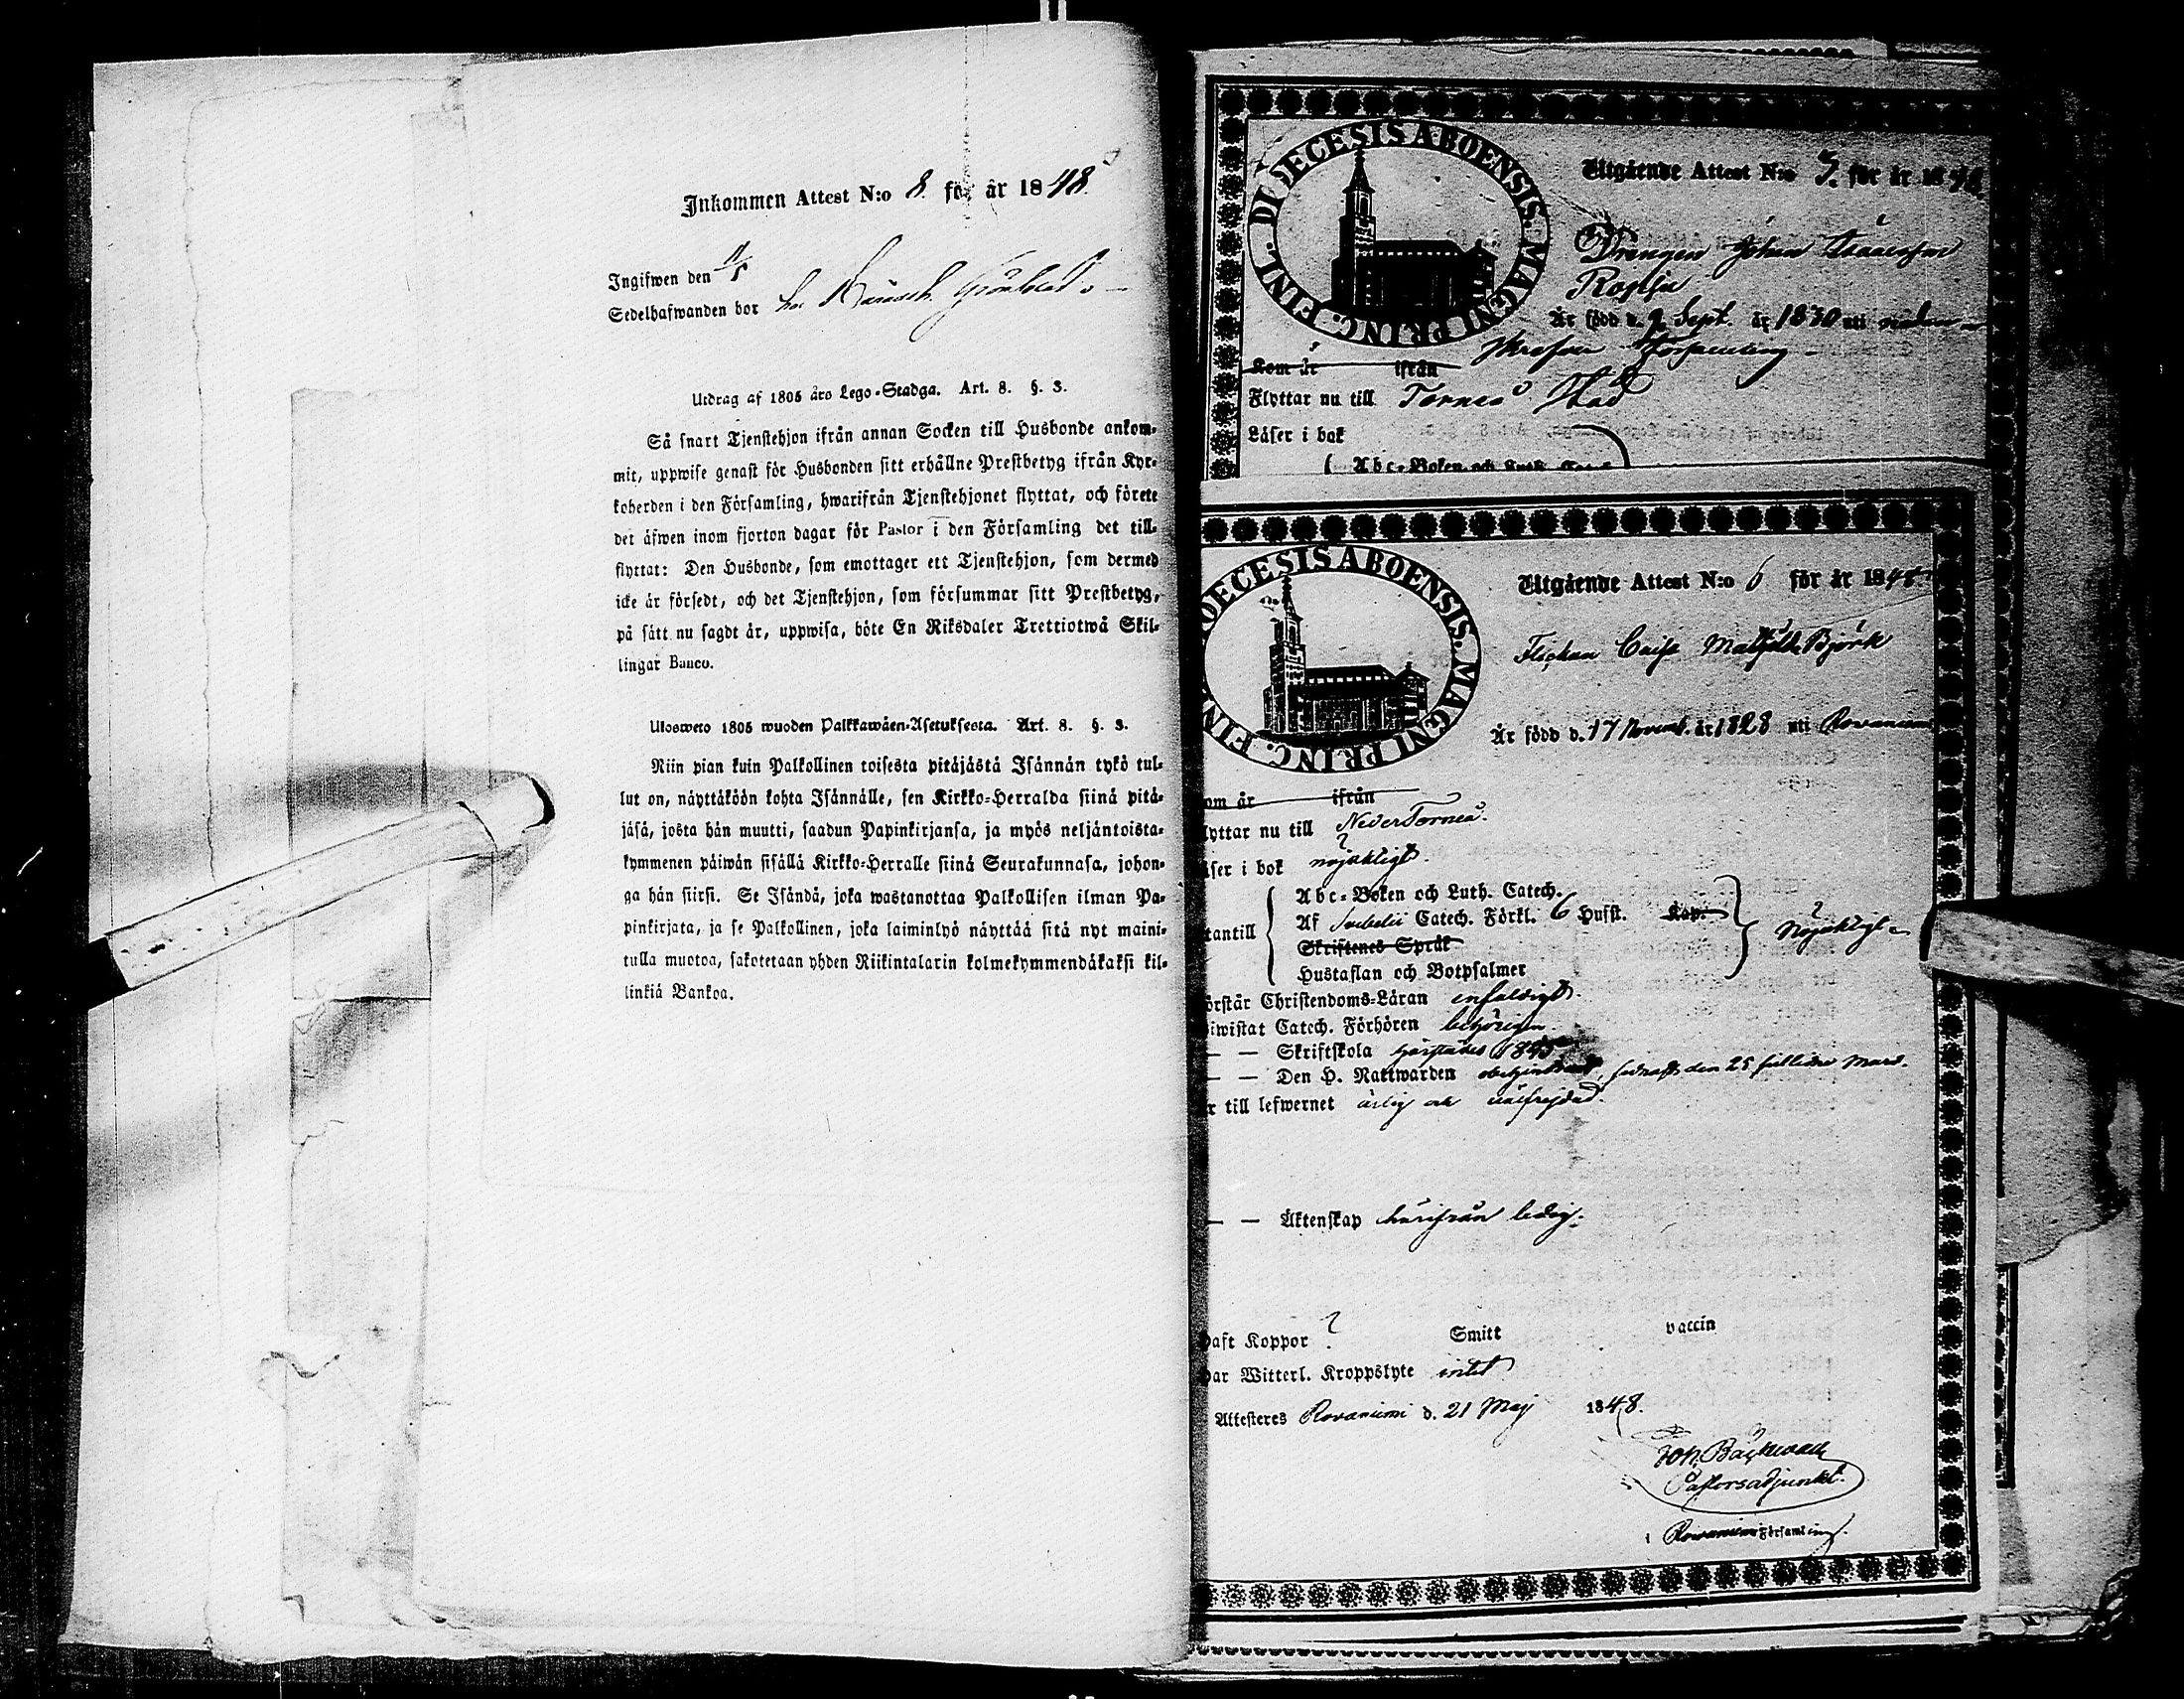 Inkommen Attest N:o 8. för år 1848.
Ingifwen den 11/5
Sedelhafwanden bor hos
Utdrag af 1805 års Lego-Stadga. Art. 8. §. 3.
Så snart Tjenstehjon ifrån annan Socken till Husbonde ankom-
mit, uppwise genast för Husbonden sitt erhållne Prestbetyg ifrån Kyr-
koherden i den Församling, hwarifrån Tjenstehjonet flyttat, och förete
det äfwen inom fjorton dagar för Pastor i den Församling det till-
flyttat: Den Husbonde, som emottager ett Tjenstehjon, som dermed
icke är försedt, och det Tjenstehjon, som försummar sitt Prestbetyg,
på sätt nu sagdt är, uppwisa, böte En Riksdaler Trettiotwå Skil-
lingar Banco.
Ulosweto 1805 wuoden Palkkawäen-Asetuksesta. Art. 8. §. 3.
Niin pian kuin Palkollinen toisesta pitäjästä Isännän tykö tul-
lut on, näyttäköön kohta Isännälle, sen Kirkko-Herralda siinä pitä-
jäsä, josta hän muutti, saadun Papinkirjansa, ja myös neljäntoista-
kymmenen päiwän sisällä Kirkko-Herralle siinä Seurakunnasa, johon-
ga hän siirsi. Se Isändä, joka wastanottaa Palkollisen ilman Pa-
pinkirjata, ja se Palkollinen, joka laiminlyö näyttää sitä nyt maini-
tulla muotoa, sakotetaan yhden Riikintalarin kolmekymmendäkaksi kil-
linkiä Bankoa.
DIOECESIS ABOENSIS. MAGNI PRINC. FINL.
Utgående Attest N:o 7. för år 1848
Drengen Johan
Är född d. 9 Sept. år 1830 uti
Församling
Kom år ifrån
Flyttar nu till Torneå Stad
Läser i bok
Abc-Boken och Luth.
OECESIS ABOENSIS. MAGNI PRINC. FIN
Utgående Attest N:o 6 för år 1848
Flickan Caisa Mathilda Björk
Är född d. 17 Novemb. år 1828 uti Rovaniemi
om år ifrån
lyttar nu till Neder Torneå.
äser i bok nöjaktigt.
tantill
Abc-Boken och Luth. Catech.
Af Svebelii Catech. Förkl. 6 Hufst. Kap.
Skriftenes Språk
Hustaflan och Botpsalmer
Nöjaktigt
örstår Christendoms-Läran enfaldigt.
iwistat Catech. Förhören behörigen.
— — Skriftskola 1845
— — Den H. Nattwarden obehindrad, den 25 sistlidne Mars.
r till lefwernet ärlig och välfrejdad.
— — Äktenskap härifrån ledig.
aft Koppor ? Smitt vaccin
ar Witterl. Kroppslyte intet
Attesteres Rovaniemi d. 21 Maj 1848.
Joh. Bäckwall
Pastorsadjunkt.
i Rovaniemi Församling.